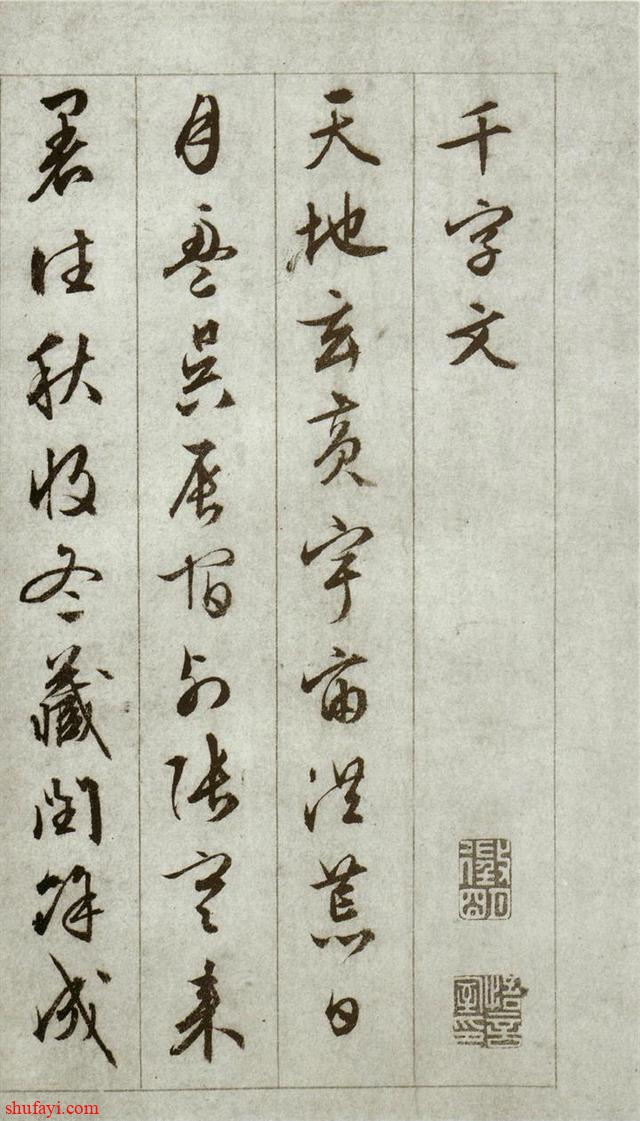 千字文
天地玄黃宇宙洪荒日
月盈昃辰宿列張寒来
暑往秋收冬藏閏餘成
shufayi.com